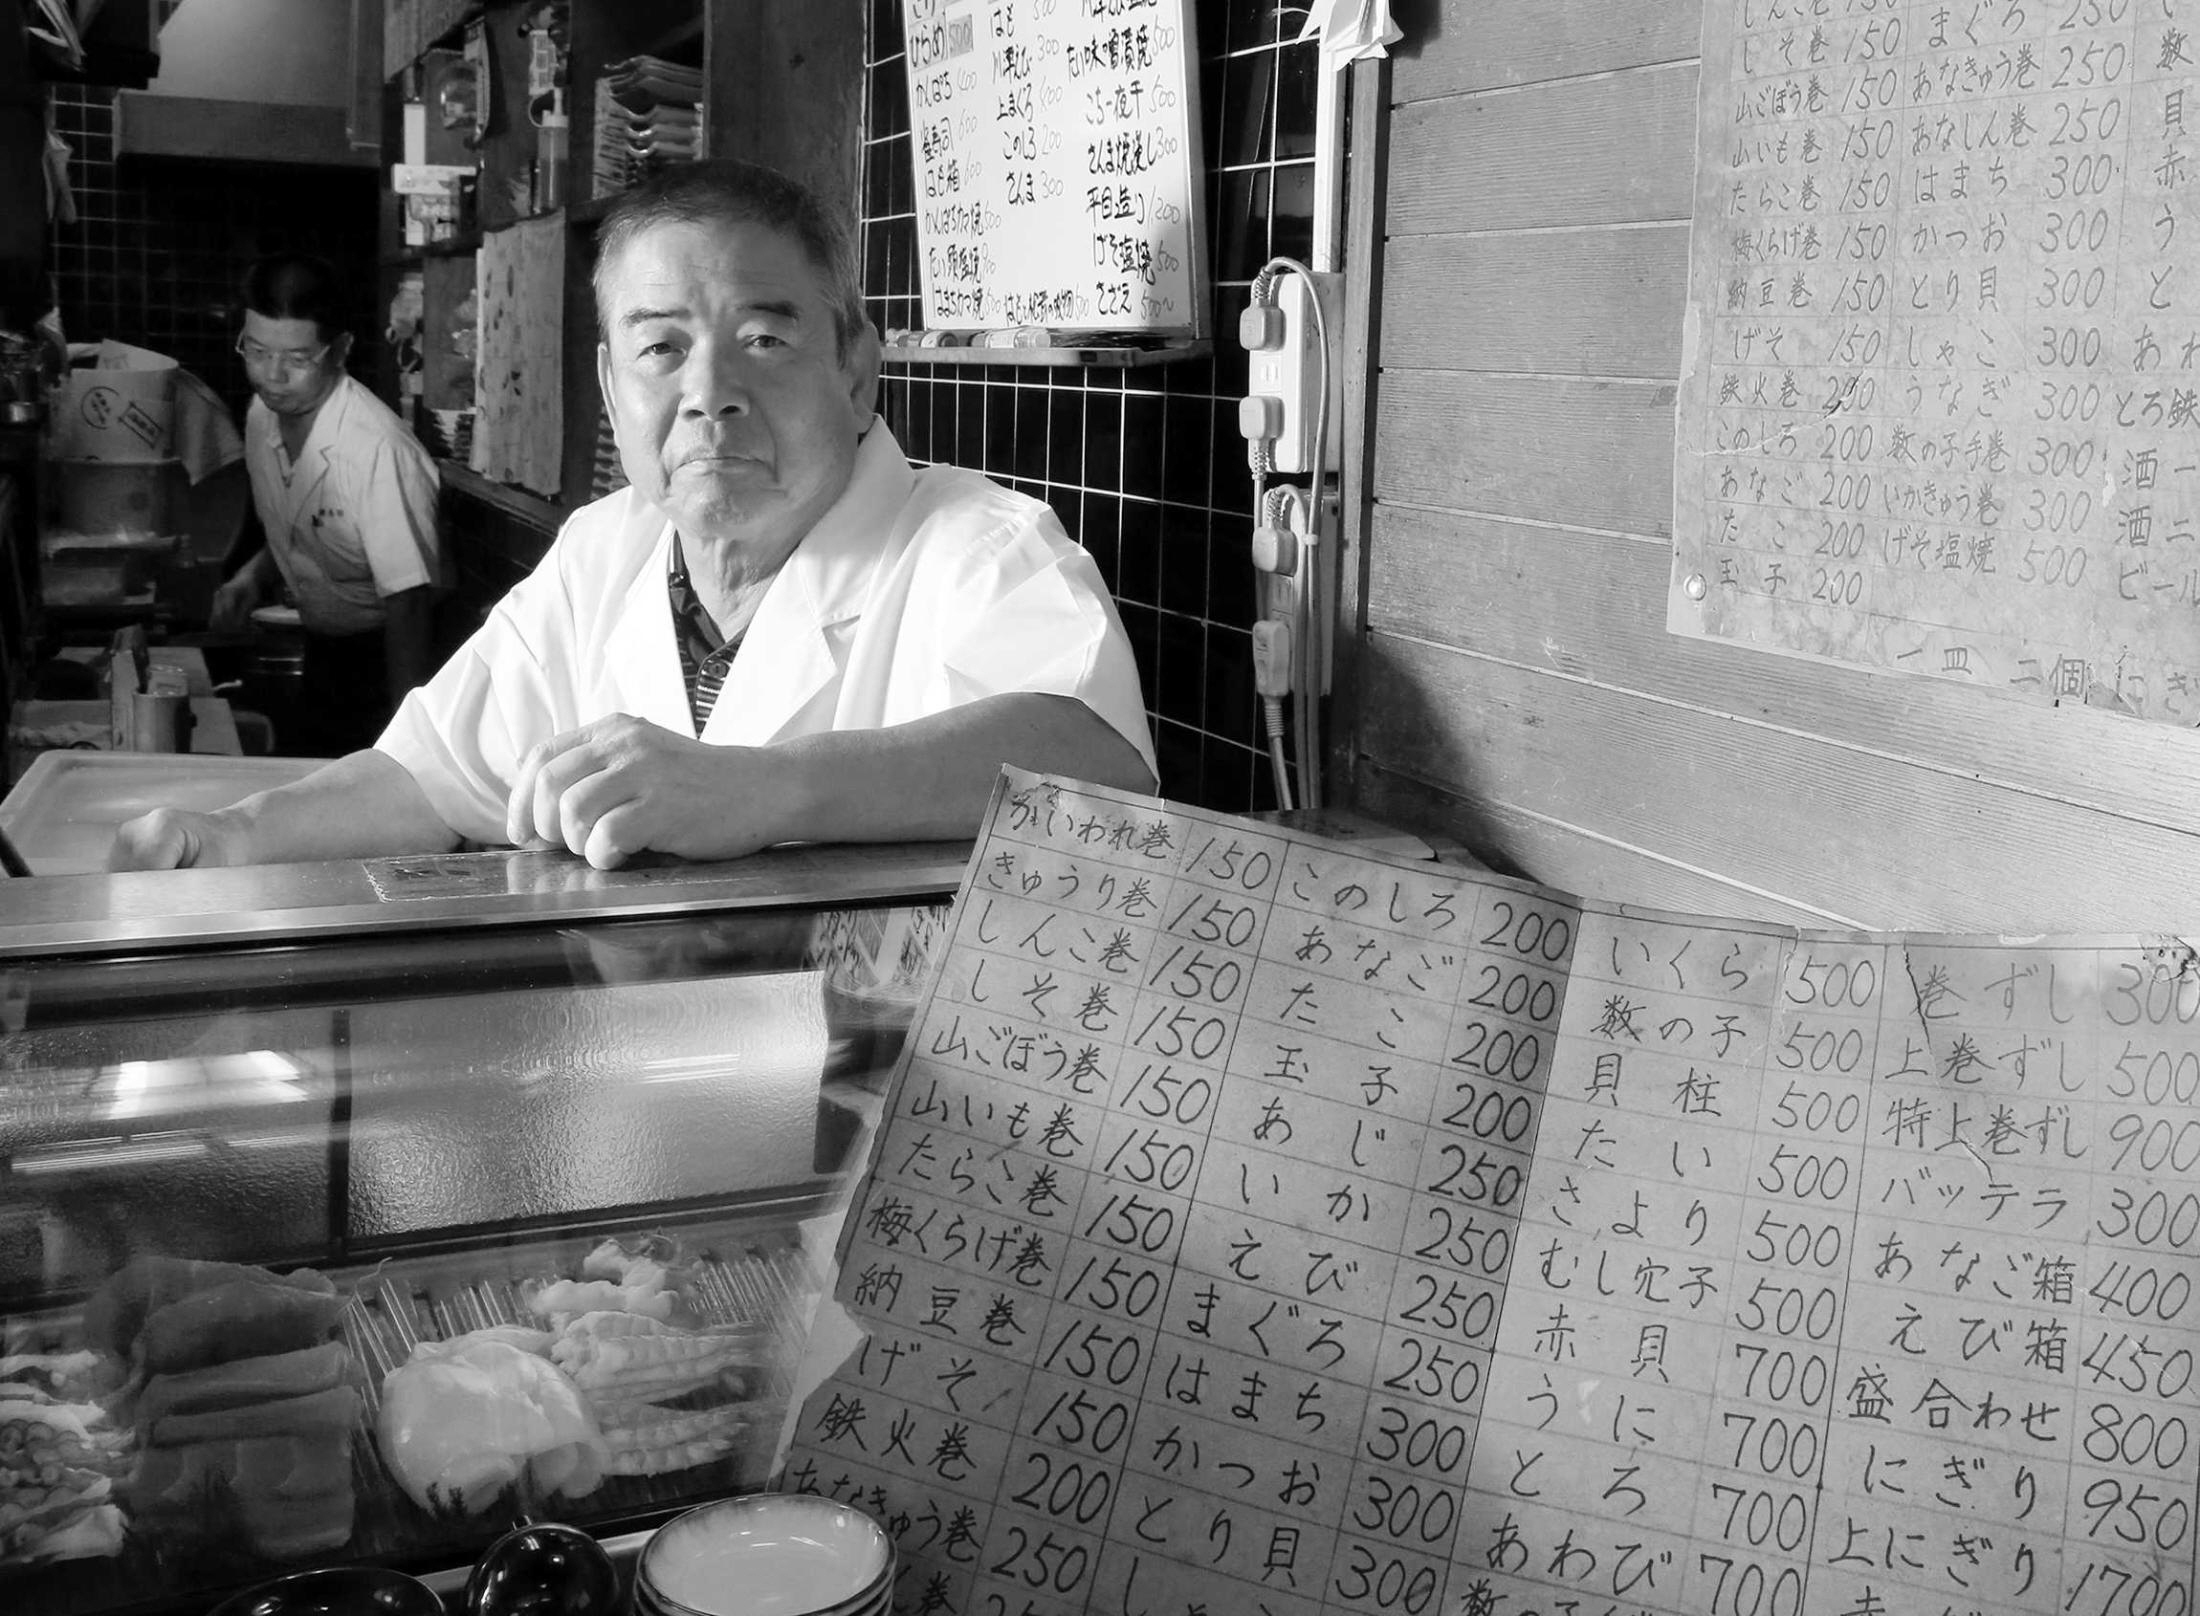 ひらめ 500
かんぱち 400
雀寿司 600
はも箱 600
かんぱちカマ焼 500
たい頭塩焼
はまちカマ焼
はも 500
川津えび 300
上まぐろ 400
このしろ 200
さんま 300
たい味噌漬焼 500
こち一夜干 500
さんま焼浸し 300
平目造り 1200
げそ塩焼 500
さざえ 500〜
しんこ巻 150 まぐろ 250
しそ巻 150 あなきゅう巻 250 数
山ごぼう巻 150 あなしん巻 250 貝
山いも巻 150 はまち 300 赤
たらこ巻 150 かつお 300 う
梅くらげ巻 150 とり貝 300 と
納豆巻 150 しゃこ 300 あわ
げそ 150 うなぎ 300 とろ鉄
鉄火巻 200 数の子手巻 300 酒一
このしろ 200 いかきゅう巻 300 酒二
あなご 200 げそ塩焼 500 ビール
たこ 200
玉子 200
一皿 二個 にぎ
かいわれ巻 150
きゅうり巻 150
しんこ巻 150
しそ巻 150
山ごぼう巻 150
山いも巻 150
たらこ巻 150
梅くらげ巻 150
納豆巻 150
げそ 150
鉄火巻 200
あなきゅう巻 250
このしろ 200
あなご 200
たこ 200
玉子 200
あじ 250
いか 250
えび 250
まぐろ 250
はまち 300
かつお 300
とり貝 300
いくら 500
数の子 500
貝柱 500
たい 500
さより 500
むし穴子 500
赤貝 700
うに 700
とろ 700
あわび 700
巻ずし 300
上巻ずし 500
特上巻ずし 900
バッテラ 300
あなご箱 400
えび箱 450
盛合わせ 800
にぎり 950
上にぎり 1700